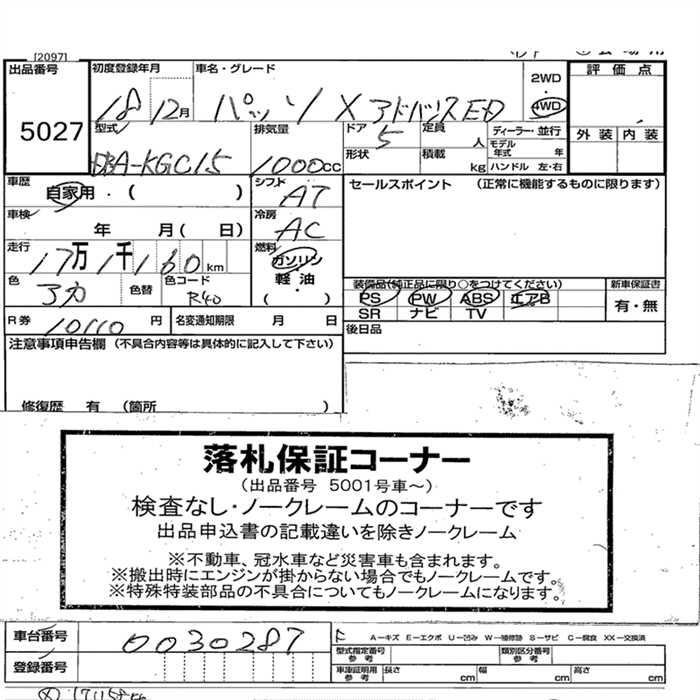 [2097]
出品番号 初度登録年月 車名・グレード 2WD 評価点
5027 18 12月 パッソ X アドバンスED 4WD
型式 排気量 ドア 定員 ディーラー・並行 外装 内装
DBA-KGC15 1000cc 5 人 モデル年式 年
形状 積載 kg ハンドル 左・右
車歴 自家用・( ) シフト AT セールスポイント (正常に機能するものに限ります)
車検 年 月( 日) 冷房 AC
走行 17万1千160km 燃料 ガソリン・
色 アカ 色替 色コード R40 軽油 ( ) 装備品(純正品に限り○をつけてください) 新車保証書
PS PW ABS エアB 有・無
R券 10110円 名変通知期限 月 日 SR ナビ TV
注意事項申告欄 (不具合内容等は具体的に記入して下さい) 後日品
修復歴 有 (箇所 )
落札保証コーナー
(出品番号 5001号車~)
検査なし・ノークレームのコーナーです
出品申込書の記載違いを除きノークレーム
※不動車、冠水車など災害車も含まれます。
※搬出時にエンジンが掛からない場合でもノークレームです。
※特殊特装部品の不具合についてもノークレームになります。
車台番号 0030287 A-キズ E-エクボ U-凹み W-補修跡 S-サビ C-腐食 XX-交換済
登録番号 型式指定番号 参考 類別区分番号 参考
車庫証明用 参考 長さ cm 幅 cm 高さ cm